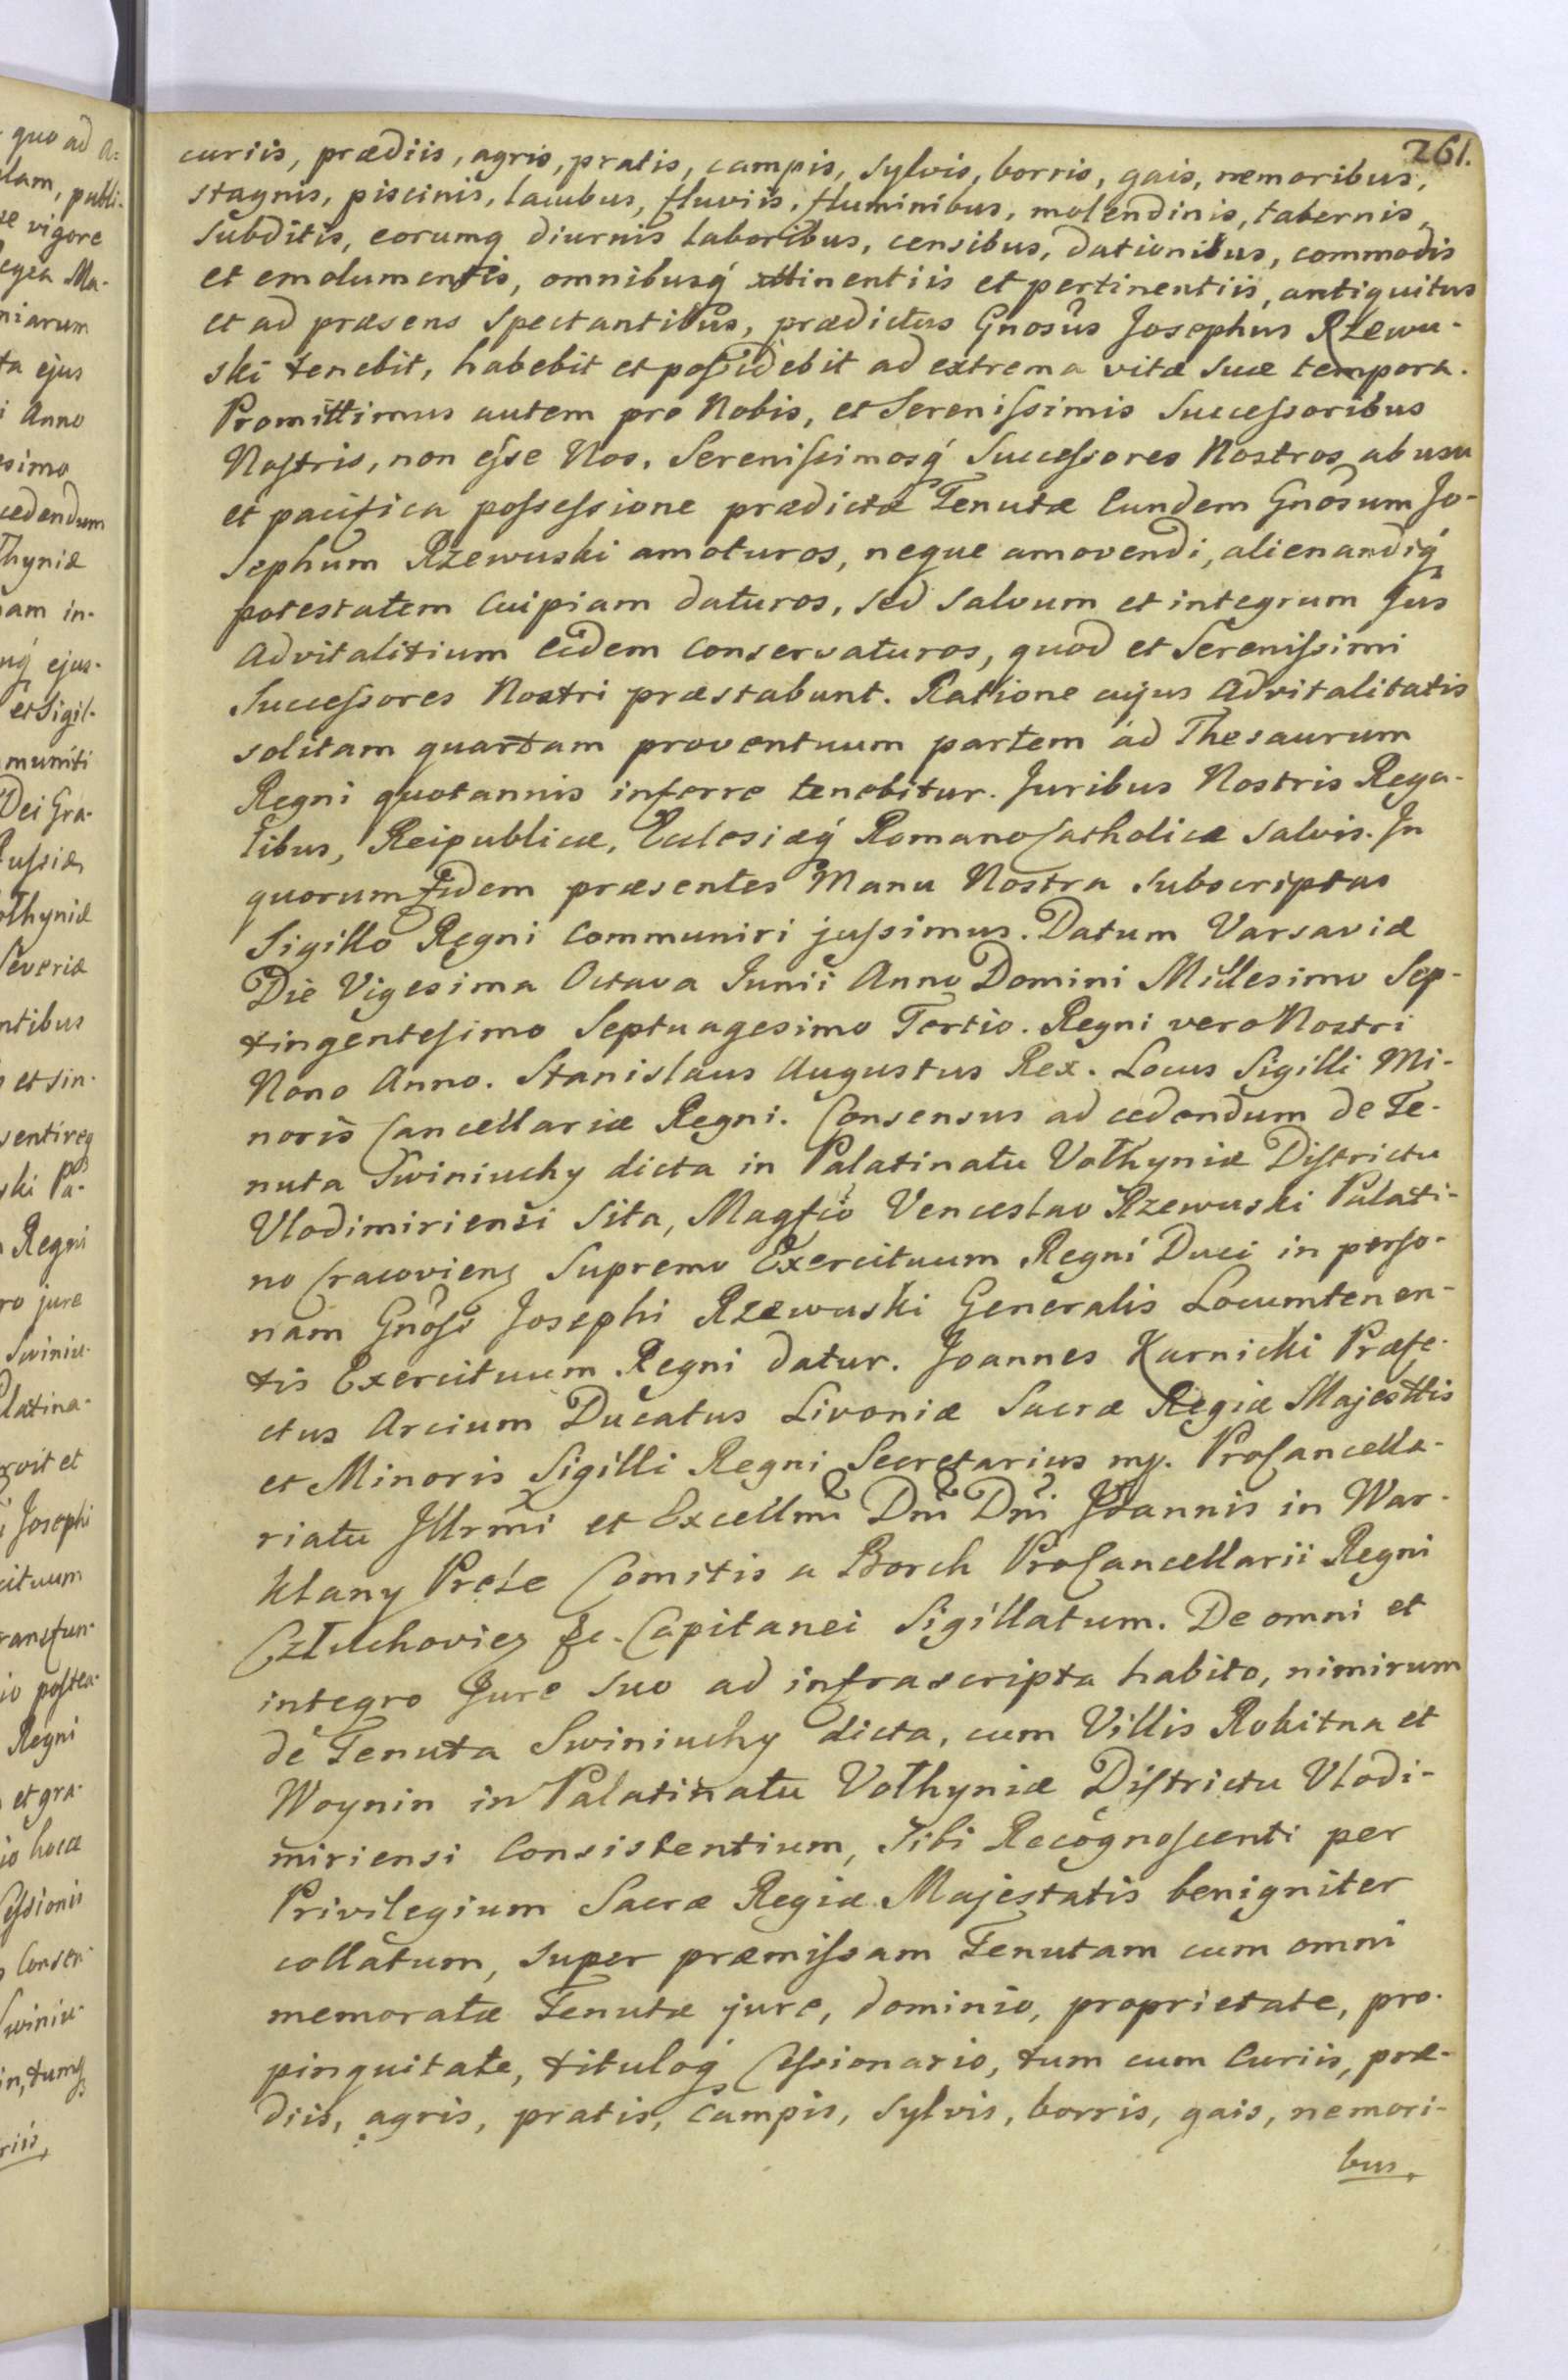 261.
curiis, prædiis, agris, pratis, campis, sylvis, borris, gais, nemoribus,
stagnis, piscinis, lacubus, fluviis, fluminibus, molendinis, tabernis,
Subditis, eorumq diurnis laboribus, censibus, dationibus, commodis
et emolumentis, omnibusq́ attinentiis et pertinentiis, antiquitus
et ad præsens spectantibus, prædictus Gnosûs Josephus Rzewu-
ski tenebit, habebit et poſsidebit ad extrema vitæ suæ tempora.
Promittimus autem pro Nobis, et Sereniſsimis Succeſsoribus
Noſtris, non eſse Nos, Sereniſsimosq́ Succeſsores Nostros ab usu
et pacifica poſseſsione prædictæ Tenutæ Eundem Gnôsum Jo-
sephum Rzewuski amoturos, neque amovendi, alienandiq́
potestatem Cuipiam daturos, sed salvum et integrum Jus
Advitalitium Eidem Conservaturos, quod et Sereniſsimi
Succeſsores Nostri præstabunt. Ratione cujus Advitalitatis
solitam quartam proventuum partem ad Thesaurum
Regni quotannis inferre tenebitur. Juribus Nostris Rega-
libus, Reipublicæ, Ecclesiæq́ Romano Catholicæ salvis. In
quorum Fidem præsentes Manu Nostra subscriptas
Sigillo Regni Communiri juſsimus. Datum Varsaviæ
Die Vigesima Octava Junii Anno Domini Millesimo Sep-
tingenteſimo Septuagesimo Tertio. Regni vero Nostri
Nono Anno. Stanislaus Augustus Rex. Locus Sigilli Mi-
noris Cancellariæ Regni. Consensus ad cedendum de Te-
nuta Swiniuchy dicta in Palatinatu Volhyniæ Diſtrictu
Vlodimiriensi Sita, Magfco Venceslao Rzewuski Palati-
no Cracovienz Supremo Exercituum Regni Duci in perſo-
nam Gnôsi Josephi Rzewuski Generalis Locumtenen-
tis Exercituum Regni datur. Joannes Karnicki Præfe-
ctus Arcium Ducatus Livoniæ Sacræ Regiæ Majesttis
et Minoris Sigilli Regni Secretarius mp. ProCancella-
riatu Illrmi et Excellmi Dni Dni Joannis in War-
klany Prele Comitis a Borch ProCancellarii Regni
Człuchoviez &c. Capitanei Sigillatum. De omni et
integro Jure suo ad infrascripta habito, nimirum
de Tenuta Swiniuchy dicta, cum Villis Rokitna et
Woynin in Palatinatu Volhyniæ Diſtrictu Vlodi-
miriensi Consistentium, Sibi Recognoſcenti per
Privilegium Sacræ Regiæ Majestatis benigniter
collatum, super præmiſsam Tenutam cum omni
memoratæ Tenutæ jure, dominio, proprietate, pro-
pinquitate, tituloq́ Ceſsionario, tum cum Curiis, præ-
diis, agris, pratis, Campis, sylvis, borris, gais, nemori-
bus,